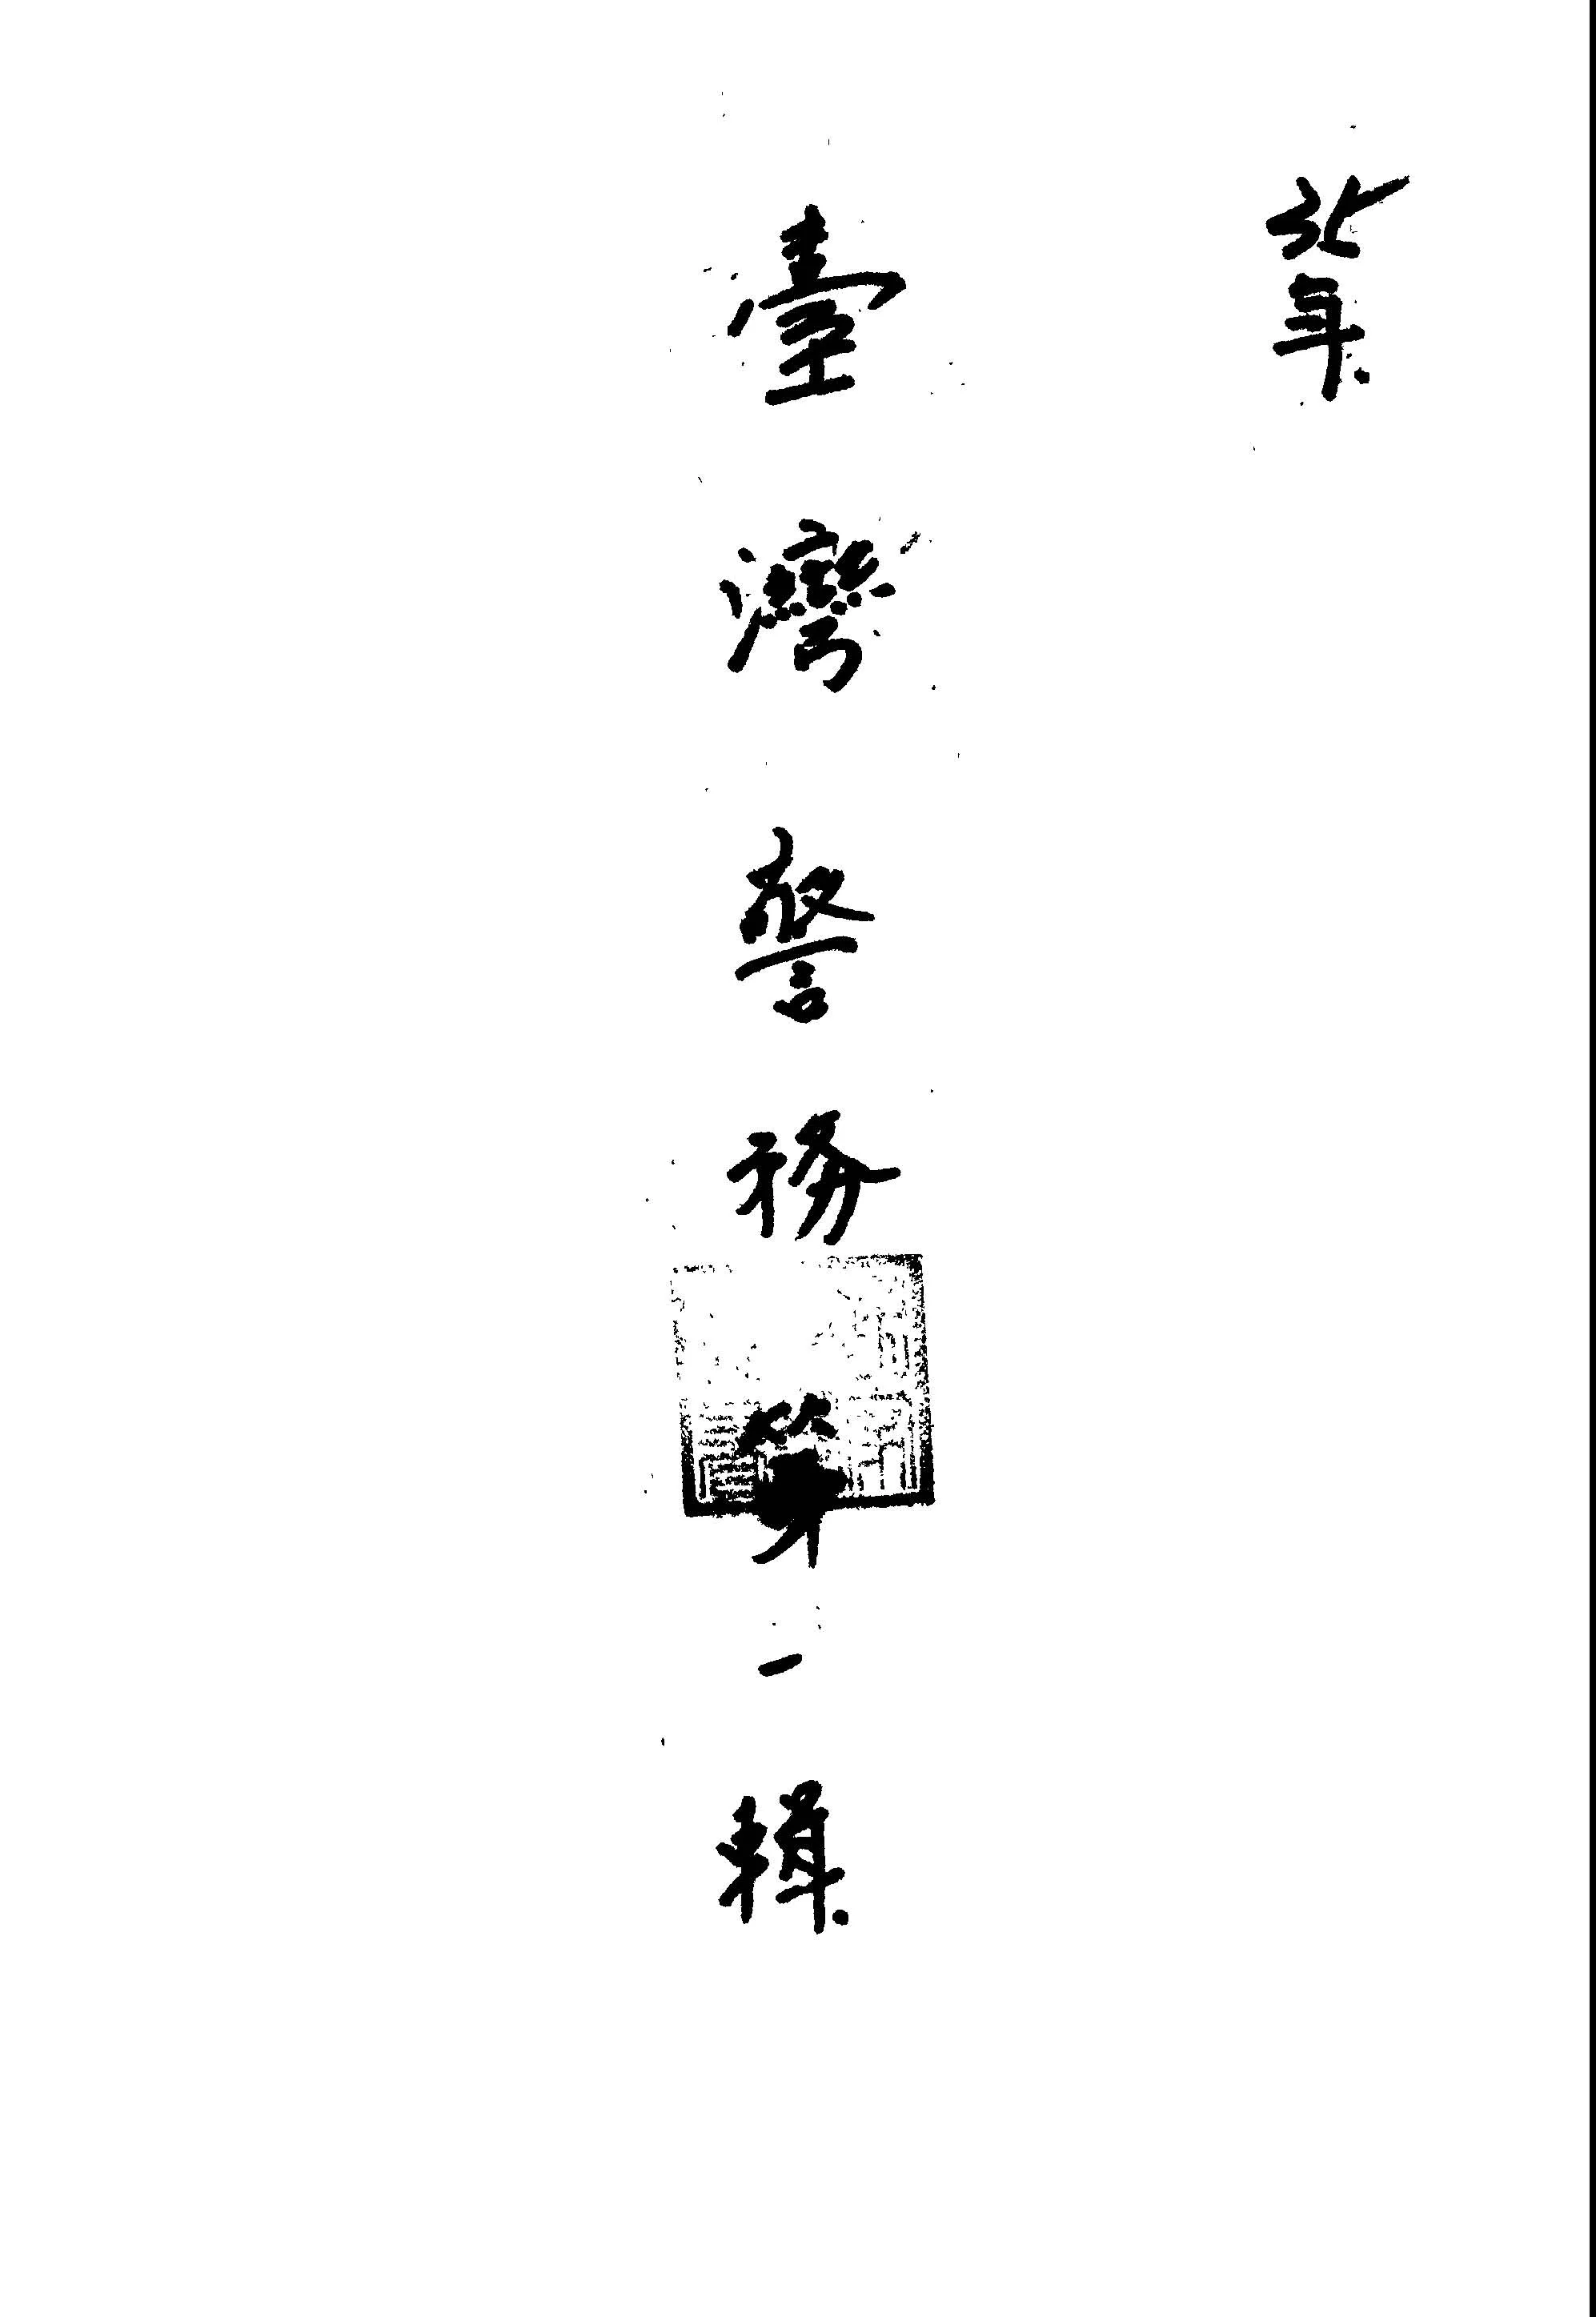 35年.
臺灣警務第一輯.